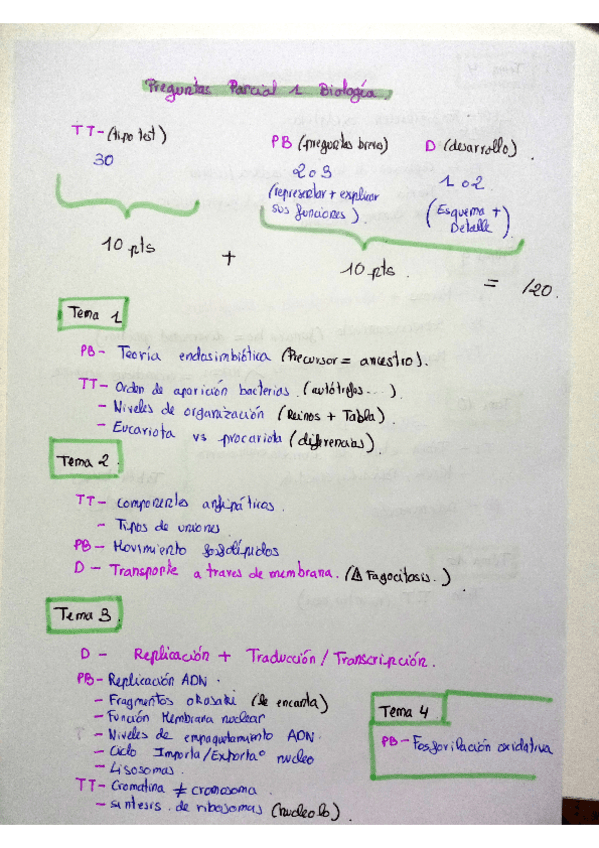 Preguntas Parcial 1 Biología.
TT-(tipo test)
30
PB (preguntas breves)
2 o 3
(representar + explicar
sus funciones)
D (desarrollo)
1 o 2
(Esquema +
Detalle)
10 pts + 10 pts. = /20.
Tema 1
PB- Teoría endosimbiótica (Precursor = ancestro).
TT- Orden de aparición bacterias (autótrofos...)
- Niveles de organización (Reinos + Tabla)
- Eucariota vs procariota (diferencias)
Tema 2.
TT- componentes anfipáticos.
- Tipos de uniones
PB- Movimiento fosfolípidos
D- Transporte a traves de membrana. (Δ Fagocitosis.)
Tema 3.
D - Replicación + Traducción / Transcripción.
PB- Replicación ADN.
- Fragmentos okasaki (le encanta)
- Función Membrana nuclear
- Niveles de empaquetamiento ADN.
- Ciclo Importa/Exportaº nucleo
- Lisosomas.
TT- Cromatina ≠ cromosoma
- sintesis de ribosomas (nucleolo)
Tema 4
PB- Fosforilación oxidativa